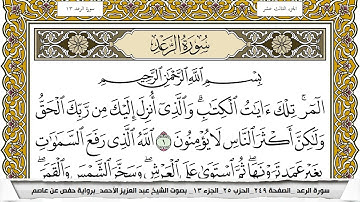 الجزء الثالث عشر
سورة الرعد ١٣
سُورَةُ الرَّعْدِ
بِسْمِ اللَّهِ الرَّحْمَٰنِ الرَّحِيمِ
الٓمٓرۚ تِلْكَ ءَايَٰتُ ٱلْكِتَٰبِۗ وَٱلَّذِىٓ أُنزِلَ إِلَيْكَ مِن رَّبِّكَ ٱلْحَقُّ
وَلَٰكِنَّ أَكْثَرَ ٱلنَّاسِ لَا يُؤْمِنُونَ ١ ٱللَّهُ ٱلَّذِى رَفَعَ ٱلسَّمَٰوَٰتِ
بِغَيْرِ عَمَدٍ تَرَوْنَهَاۖ ثُمَّ ٱسْتَوَىٰ عَلَى ٱلْعَرْشِۖ وَسَخَّرَ ٱلشَّمْسَ وَٱلْقَمَرَۖ
سورة الرعد _الصفحة ٢٤٩ _الحزب ٢٥ _الجزء ١٣ _ بصوت الشيخ عبد العزيز الأحمد_ برواية حفص عن عاصم